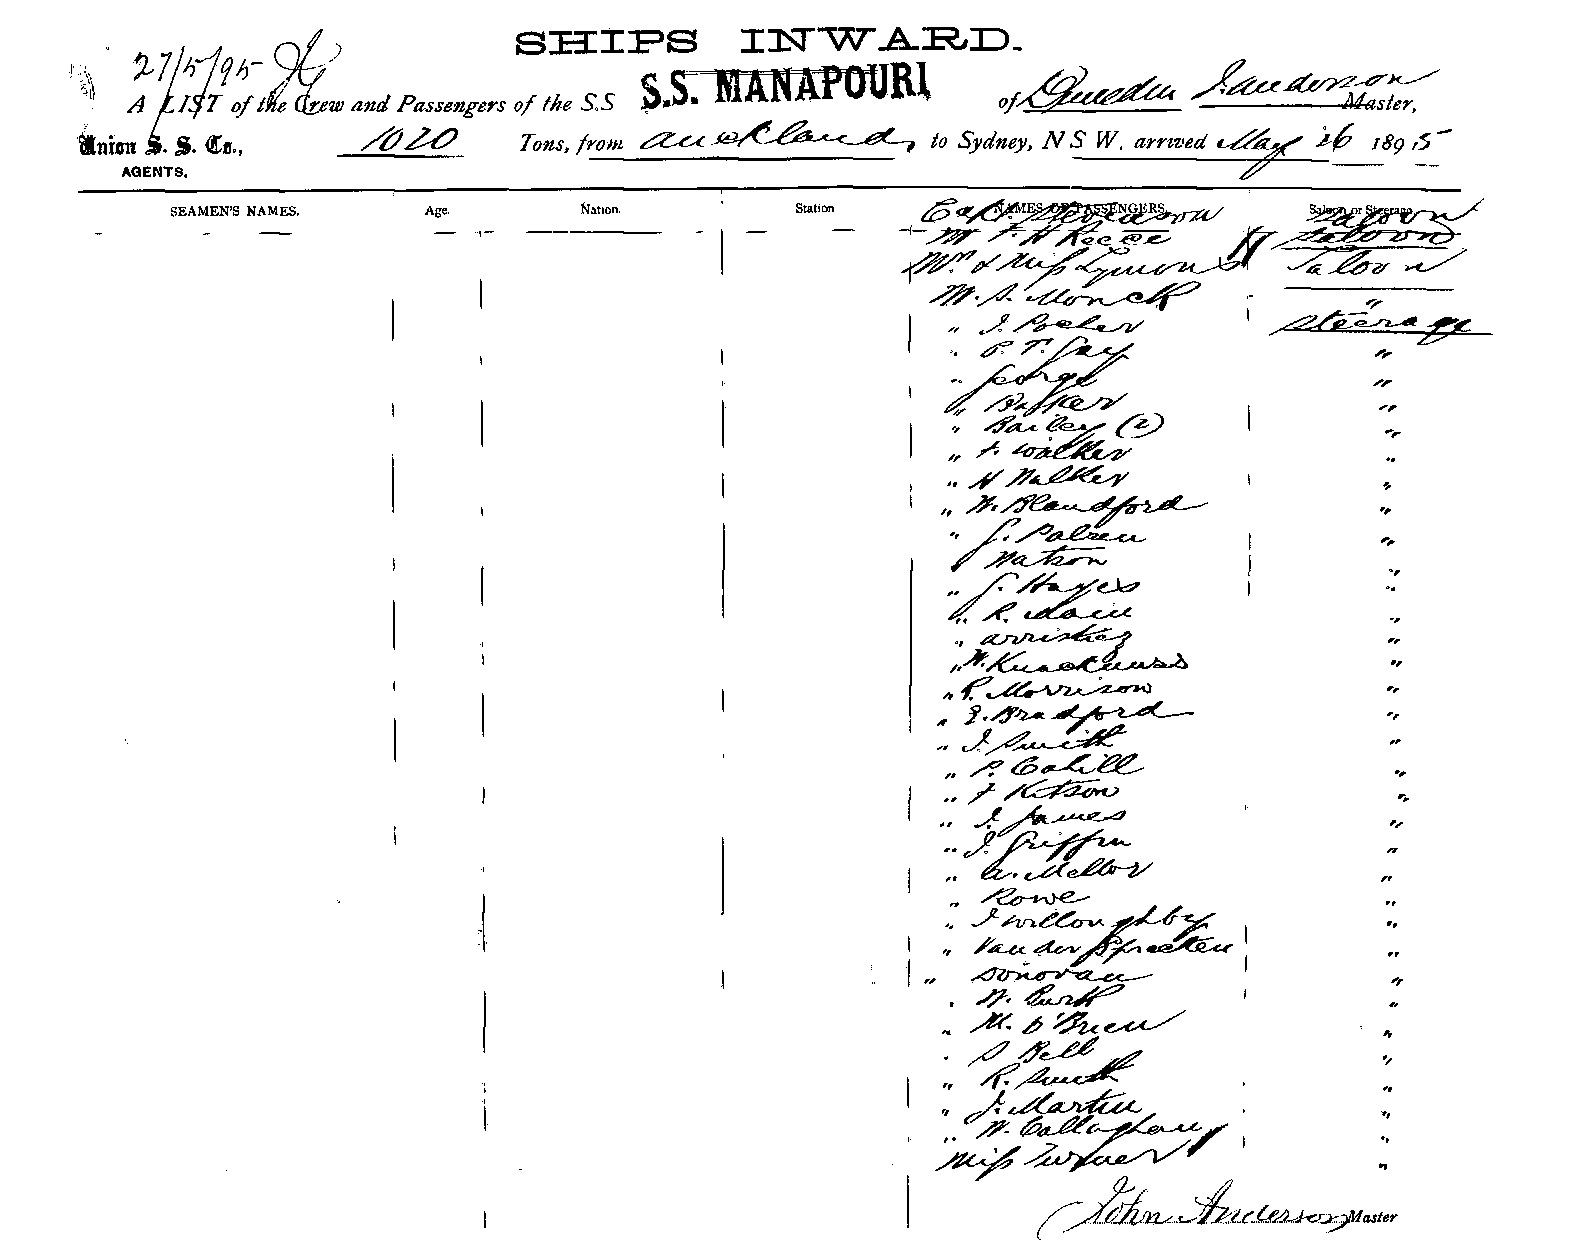 SHIPS INWARD.
27/5/95
A LIST of the Crew and Passengers of the S.S. S.S. MANAPOURI of Dunedin J. Anderson Master,
Union S. S. Co., 1020 Tons, from Auckland, to Sydney, N S W. arrived May 26 1895
AGENTS.
SEAMEN'S NAMES. Age. Nation. Station NAMES OF PASSENGERS. Saloon or Steerage
Capt. Stevenson Saloon
Mr F. H Reece Saloon
Mrs & Miss Lymons Saloon
Mr. S. Monck "
" J. Pocher Steerage
" P. T. Gay "
" George "
" Barker "
" Bailey (2) "
" F. Walker "
" H Walker "
" W. Blandford "
" G. Palsen "
" Watson "
" G. Hayes "
" R. Main "
" "
" W. "
" P. Morrison "
" E. Bradford "
" J. Smith "
" P. Cahill "
" F Kitson "
" J. James "
" J. Griffin "
" A. Mellor "
" Rowe "
" J Willoughby "
" Van der Spreeten "
" Donovan "
" W. Burk "
" M. O'Brien "
" S Bell "
" R. Smith "
" J. Martin "
" W. Callaghan "
Miss Turner "
John Anderson Master